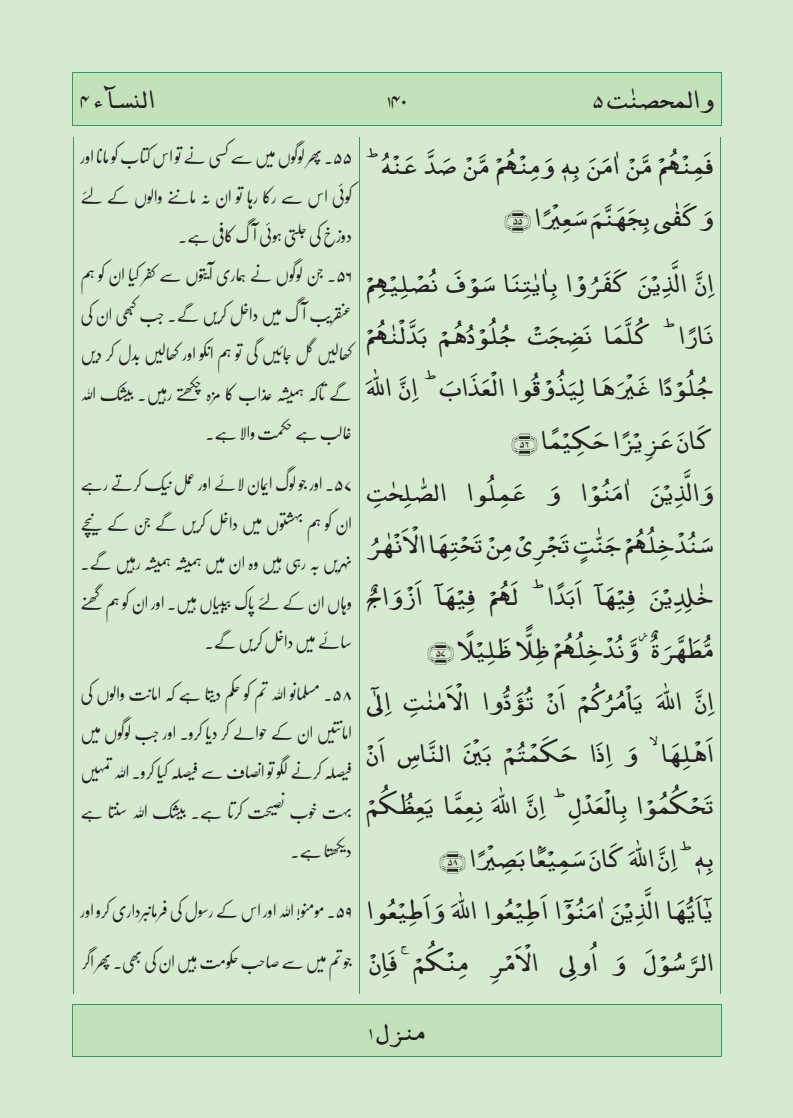 والمحصنٰت ۵
۱۴۰
النسآء ۴
فَمِنْهُمْ مَّنْ اٰمَنَ بِهٖ وَمِنْهُمْ مَّنْ صَدَّ عَنْهُ ؕ
وَ كَفٰى بِجَهَنَّمَ سَعِيْرًا ﴿۵۵﴾
اِنَّ الَّذِيْنَ كَفَرُوْا بِاٰيٰتِنَا سَوْفَ نُصْلِيْهِمْ
نَارًا ؕ كُلَّمَا نَضِجَتْ جُلُوْدُهُمْ بَدَّلْنٰهُمْ
جُلُوْدًا غَيْرَهَا لِيَذُوْقُوا الْعَذَابَ ؕ اِنَّ اللّٰهَ
كَانَ عَزِيْزًا حَكِيْمًا ﴿۵۶﴾
وَالَّذِيْنَ اٰمَنُوْا وَ عَمِلُوا الصّٰلِحٰتِ
سَنُدْخِلُهُمْ جَنّٰتٍ تَجْرِىْ مِنْ تَحْتِهَا الْاَنْهٰرُ
خٰلِدِيْنَ فِيْهَاۤ اَبَدًا ؕ لَهُمْ فِيْهَاۤ اَزْوَاجٌ
مُّطَهَّرَةٌ ۫ وَّنُدْخِلُهُمْ ظِلًّا ظَلِيْلًا ﴿۵۷﴾
اِنَّ اللّٰهَ يَاْمُرُكُمْ اَنْ تُؤَدُّوا الْاَمٰنٰتِ اِلٰٓى
اَهْلِهَا ۙ وَ اِذَا حَكَمْتُمْ بَيْنَ النَّاسِ اَنْ
تَحْكُمُوْا بِالْعَدْلِ ؕ اِنَّ اللّٰهَ نِعِمَّا يَعِظُكُمْ
بِهٖ ؕ اِنَّ اللّٰهَ كَانَ سَمِيْعًۢا بَصِيْرًا ﴿۵۸﴾
يٰۤاَيُّهَا الَّذِيْنَ اٰمَنُوْۤا اَطِيْعُوا اللّٰهَ وَاَطِيْعُوا
الرَّسُوْلَ وَ اُولِى الْاَمْرِ مِنْكُمْ ۚ فَاِنْ
۵۵۔ پھر لوگوں میں سے کسی نے تو اس کتاب کو مانا اور
کوئی اس سے رکا رہا تو ان نہ ماننے والوں کے لئے
دوزخ کی جلتی ہوئی آگ کافی ہے۔
۵۶۔ جن لوگوں نے ہماری آیتوں سے کفر کیا ان کو ہم
عنقریب آگ میں داخل کریں گے۔ جب کبھی ان کی
کھالیں گل جائیں گی تو ہم انکو اور کھالیں بدل کر دیں
گے تاکہ ہمیشہ عذاب کا مزہ چکھتے رہیں۔ بیشک اللہ
غالب ہے حکمت والا ہے۔
۵۷۔ اور جو لوگ ایمان لائے اور عمل نیک کرتے رہے
ان کو ہم بہشتوں میں داخل کریں گے جن کے نیچے
نہریں بہ رہی ہیں وہ ان میں ہمیشہ ہمیشہ رہیں گے۔
وہاں ان کے لئے پاک بیبیاں ہیں۔ اور ان کو ہم گھنے
سائے میں داخل کریں گے۔
۵۸۔ مسلمانو اللہ تم کو حکم دیتا ہے کہ امانت والوں کی
امانتیں ان کے حوالے کر دیا کرو۔ اور جب لوگوں میں
فیصلہ کرنے لگو تو انصاف سے فیصلہ کیا کرو۔ اللہ تمہیں
بہت خوب نصیحت کرتا ہے۔ بیشک اللہ سنتا ہے
دیکھتا ہے۔
۵۹۔ مومنو! اللہ اور اس کے رسول کی فرمانبرداری کرو اور
جو تم میں سے صاحب حکومت ہیں ان کی بھی۔ پھر اگر
منزل ۱